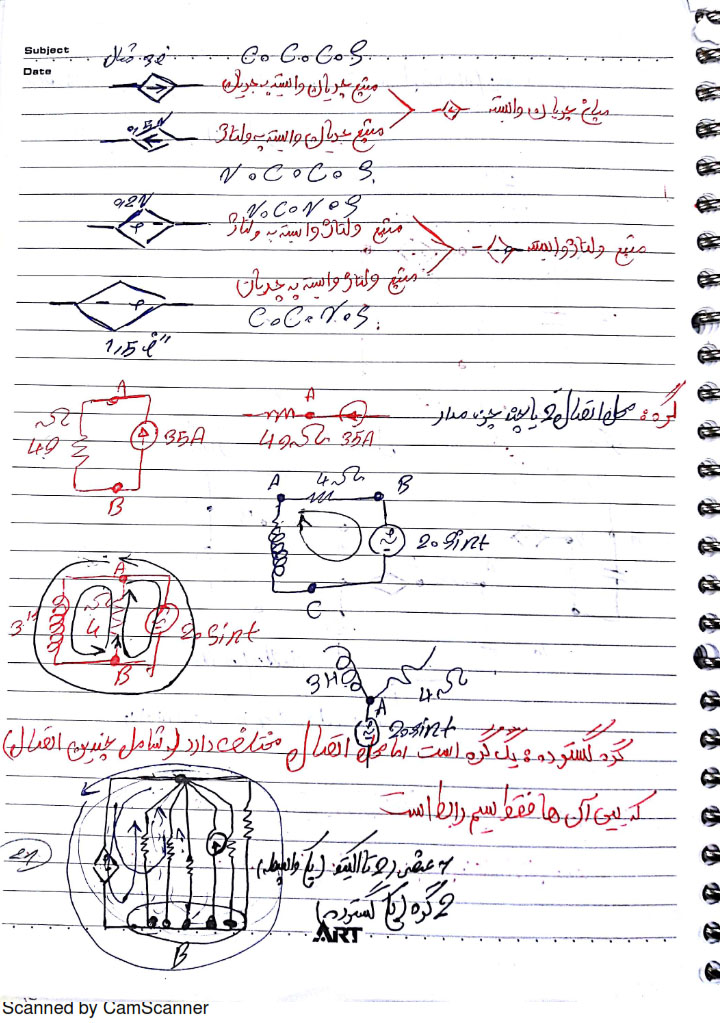 Subject
C.C.C.S
Date
منبع جریان وابسته به جریان
منابع جریان وابسته
0,5V
منبع جریان وابسته به ولتاژ
V.C.C.S.
0,2V
V.C.V.S
منبع ولتاژ وابسته به ولتاژ
منابع ولتاژ وابسته
منبع ولتاژ وابسته به جریان
C.C.V.S.
1,5 i"
گره: محل اتصال 2 یا چند جزء مدار
A
4Ω 35A
A
4Ω 35A
B
A 4Ω B
20 sint
C
A
3H 4Ω 20 sint
B
3H 4Ω
A
20 sint
گره گسترده: یک گره است اما محل اتصال مختلف دارد (و شامل چندین اتصال)
که بین آن ها فقط سیم رابط است
7 عنصر (2 تا اکتیو) (یک وابسته)
2 گره (یک گسترده)
B
ART
Scanned by CamScanner